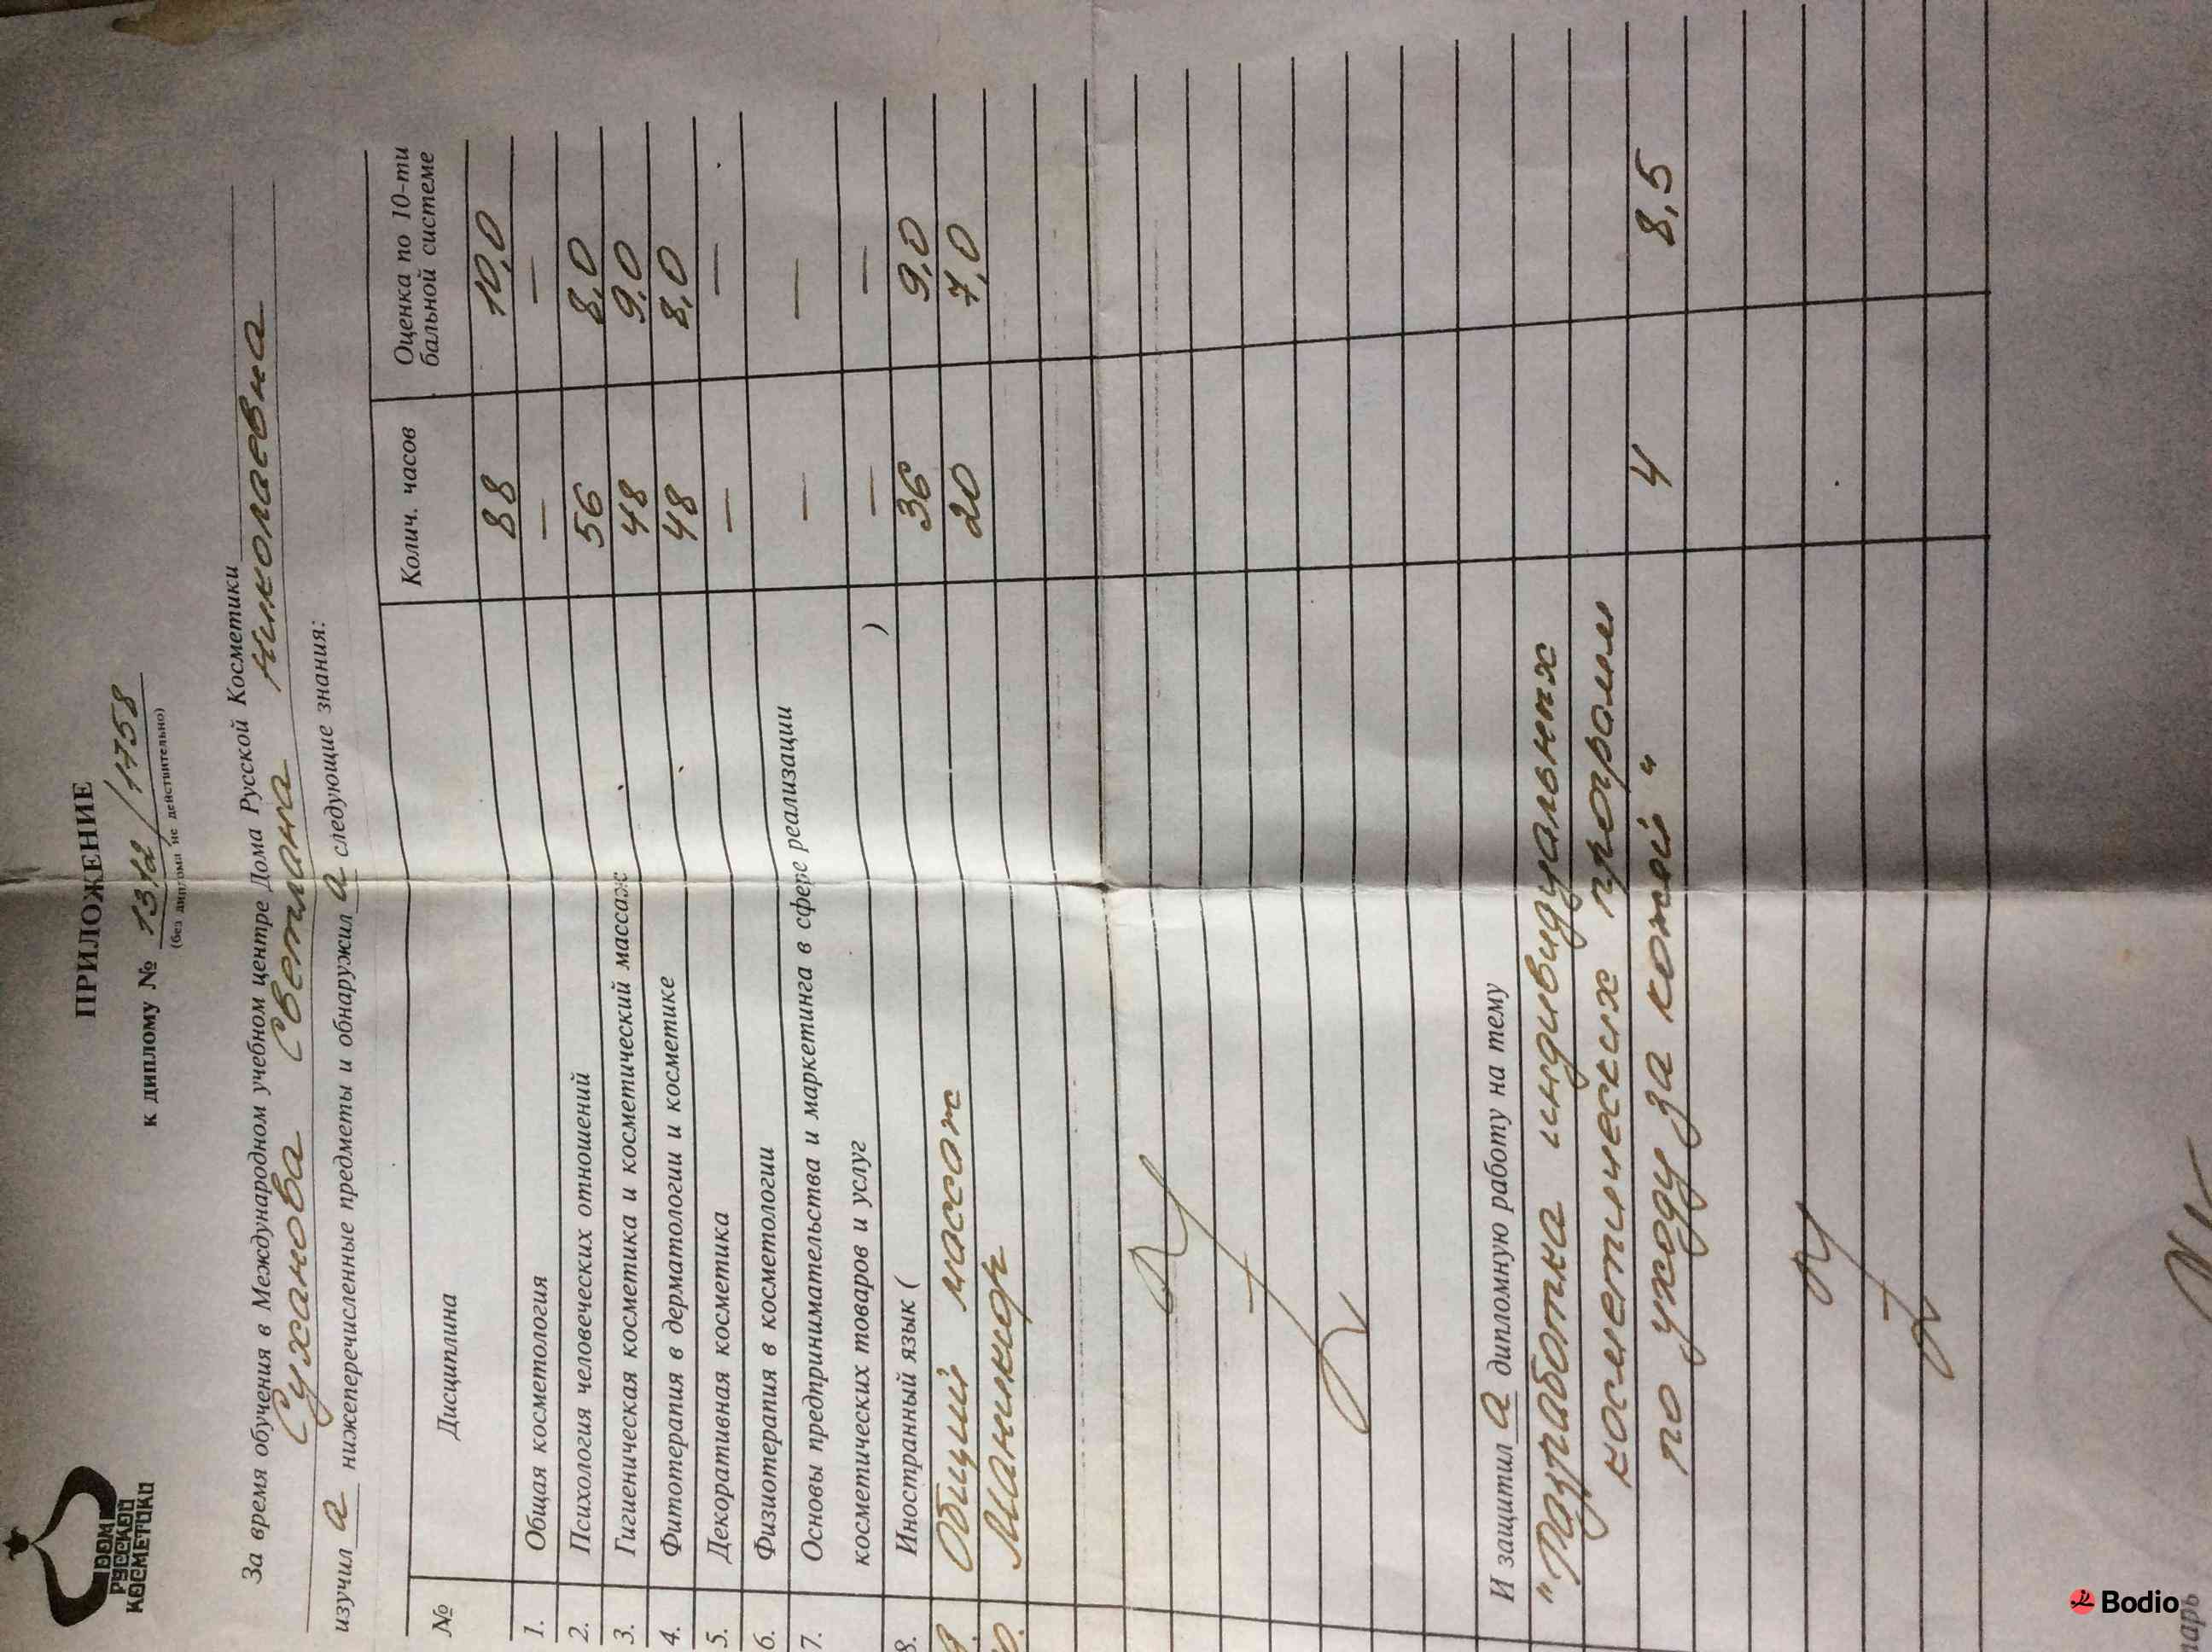 ДОМ
РУССКОЙ
КОСМЕТИКИ
ПРИЛОЖЕНИЕ
к диплому № 13.12/1758
(без диплома не действительно)
За время обучения в Международном учебном центре Дома Русской Косметики
Суханова Светлана Николаевна
изучил а нижеперечисленные предметы и обнаружил а следующие знания:
№ Дисциплина Колич. часов Оценка по 10-ти бальной системе
1. Общая косметология 88 10,0
2. Психология человеческих отношений — —
3. Гигиеническая косметика и косметический массаж 56 8,0
4. Фитотерапия в дерматологии и косметике 48 9,0
5. Декоративная косметика 48 8,0
6. Физиотерапия в косметологии — —
7. Основы предпринимательства и маркетинга в сфере реализации
косметических товаров и услуг — —
8. Иностранный язык ( ) — —
9. Общий массаж 36 9,0
0. Маникюр 20 7,0
И защитил а дипломную работу на тему
"Разработка индивидуальных
косметических программ
по уходу за кожей" 4 8,5
Bodio